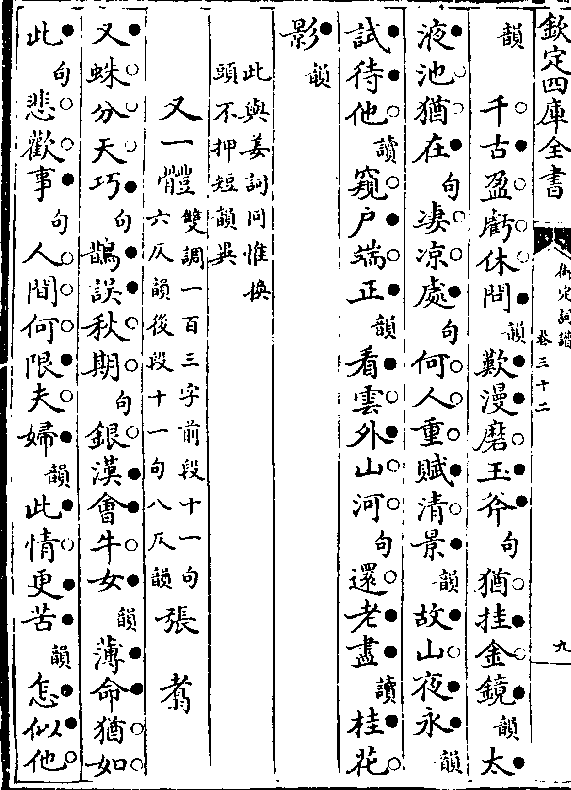 欽定四庫全書
御定詞譜
卷三十二
九
韻　千古盈虧休問韻歎漫磨玉斧句猶挂金鏡韻太
液池猶在句淒凉處句何人重賦清景韻故山夜永韻
試待他讀窺户端正韻看雲外山河句還老盡讀桂花
影韻
此與姜詞同惟換
頭不押短韻異
又一體
雙調一百三字前段十一句
六仄韻後段十一句八仄韻
張翥
又蛛分天巧句鵲誤秋期句銀漢會牛女韻薄命猶如
此句悲歡事句人間何限夫婦韻此情更苦韻怎似他